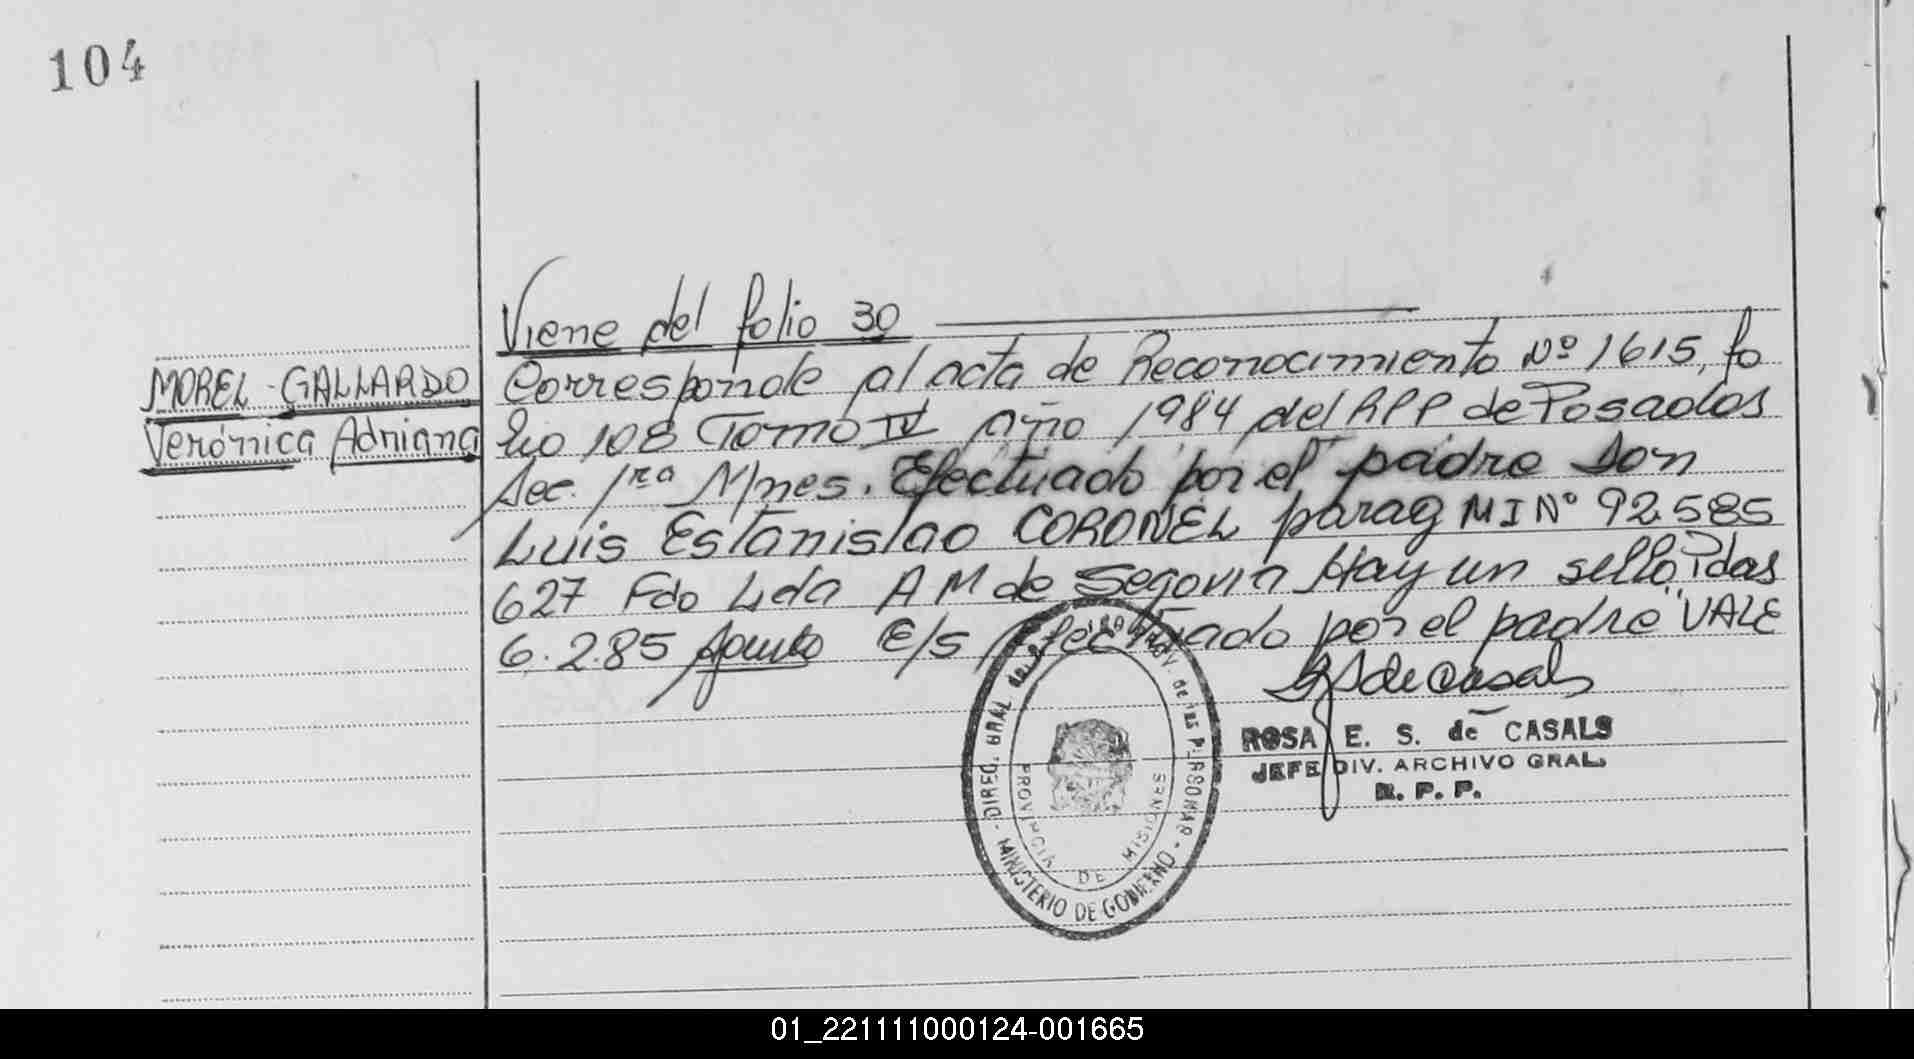 104
Viene del folio 30
MOREL - GALLARDO
Verónica Adriana
Corresponde al acta de Reconocimiento Nº 1615, fo
lio 108 Tomo IV año 1984 del RPP de Posadas
Sec. 1ra Mnes. Efectuado por el padre Don
Luis Estanislao CORONEL parag MI Nº 92.585
627 Fdo Lida A M de Segovia Hay un sello Pdas
6.2.85 E/S Efectuado por el padre "VALE
ROSA E. S. de CASALS
JEFE DIV. ARCHIVO GRAL.
R. P. P.
DIREC. GRAL. PROV. de las PERSONAS - MINISTERIO DE GOBIERNO -
PROVINCIA DE MISIONES
01_221111000124-001665